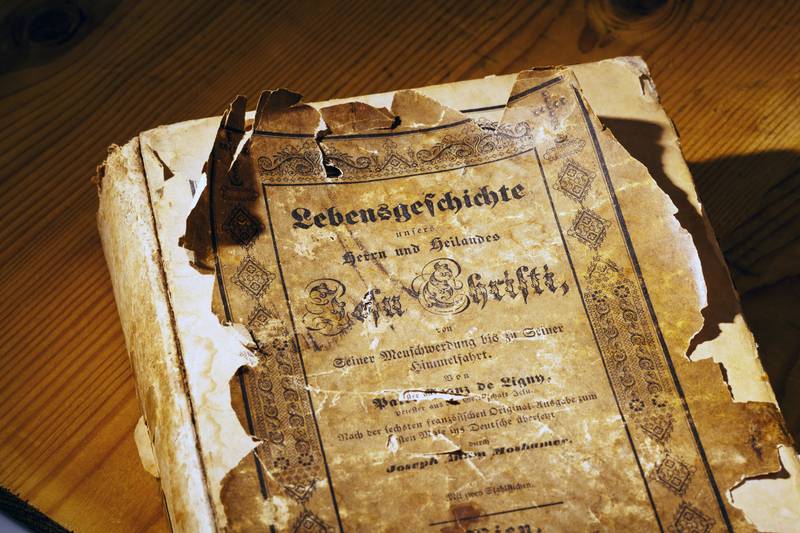 Lebensgeschichte
unsers
Herrn und Heilandes
Jesu Christi,
von
Seiner Menschwerdung bis zu Seiner
Himmelfahrt.
Von
Franz de Ligny,
Priester aus der Gesellschaft Jesu.
Nach der sechsten französischen Original-Ausgabe zum
Male ins Deutsche übersetzt
durch
Joseph Moshamer.
Mit zwei Stahlstichen.
Wien,